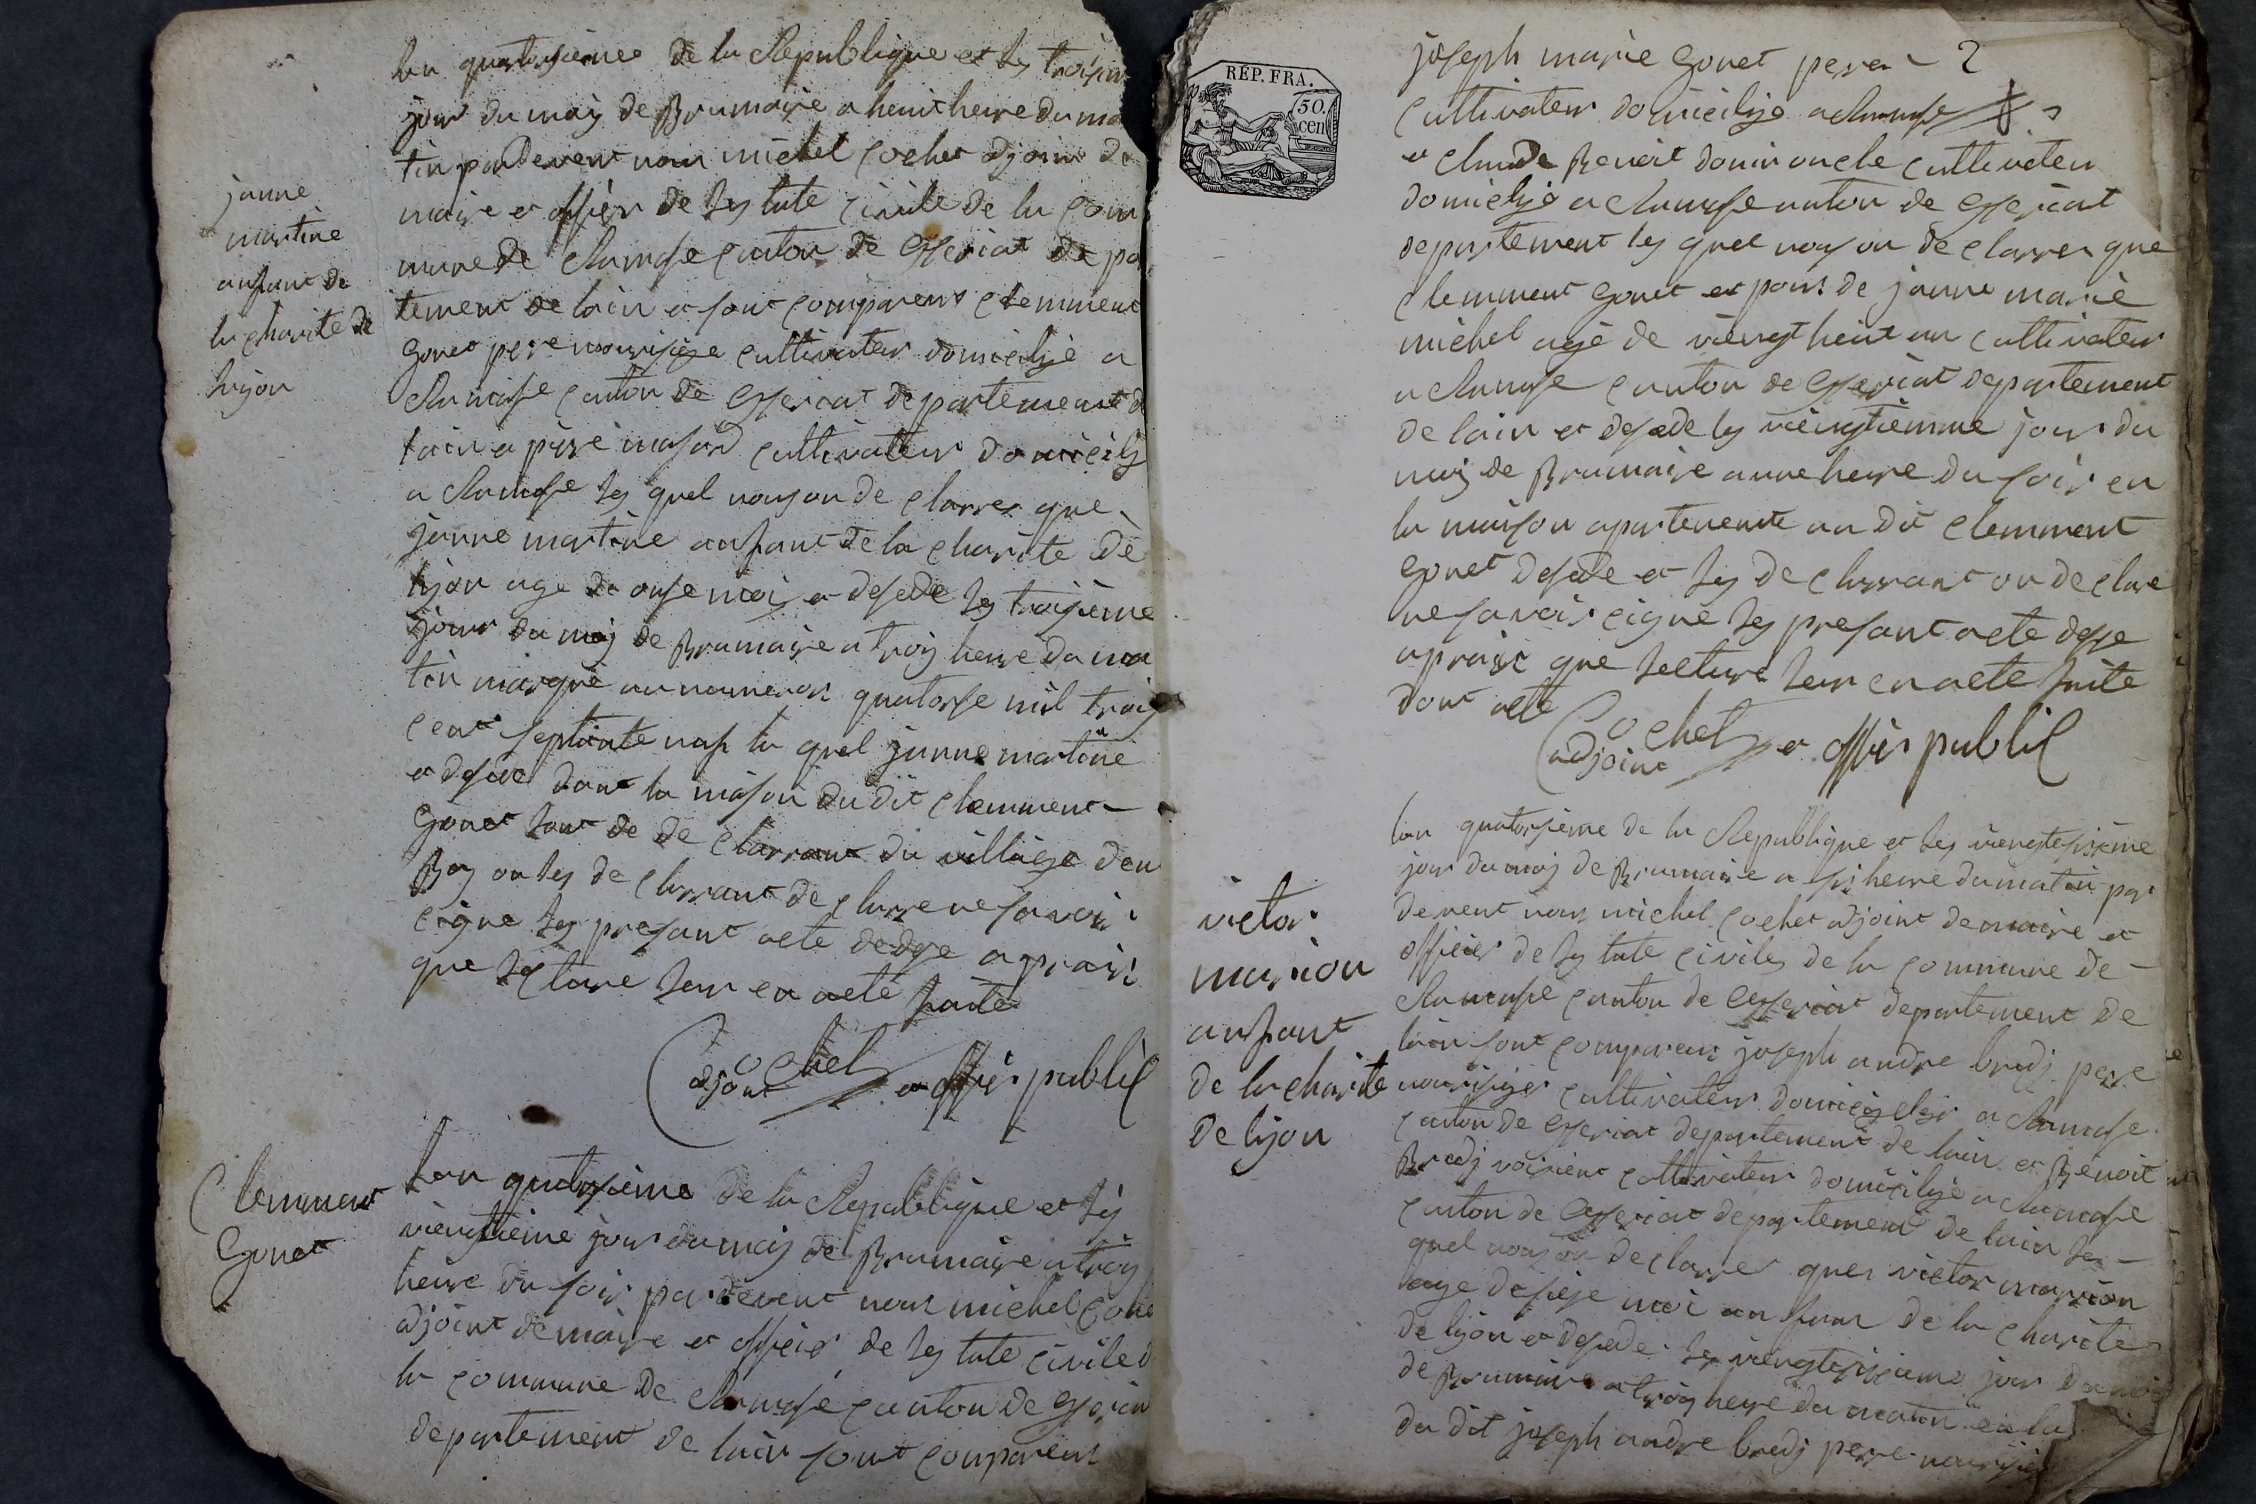 lan quatorsieme de la Republique et les troisiem
jour du mois de Brumaire a heuit heure du ma
tin pardevent nous michel Cochet adjoint de
maire et offisier de les tate civile de la Com
mune de Ramasse canton de Ceseriat depa
tement de lain et sont comparens clemment
Gonet pere nourisige cultivateur domicilie a
Ramasse canton de Ceseriat departement d
lain a piere cultivateur domicily
a Ramasse les quel nous on de clarrer que
janne martine anfant de la charite de
lyon age de onse mois et desede les troisieme
jour du mois de Brumaire a trois heure du ma
tin marque au numeros quatorse mil trois
cent septante nof la quel janne martine
et desede dant la maison du dit clemment
Gonet tout de de clarrant du village den
Boy on les de clarrant de clarre ne savoir
cigne les presant acte desse a prais
que lecture leur en acte faite
Cochet
adjoint et offisier public
janne
martine
anfant de
la charite de
lyon
Clemment
Gonet
Lan quatorsieme de la Republique et les
viengtieme jour du mois de Brumaire a trois
heure du soir pardevent nous michel Coche
adjoint de maire et offisier de les tate civile d
la commune de Ramasse canton de Ceseriat
departement de lain sont comparens
RÉP. FRA.
50.
cen
joseph marie Gonet perre
cultivateur domicilije a Ramasse
et claude Benoit donin oncle cultivateur
domicilije a Ramasse canton de Ceseriat
departement les quel nous on de clarrer que
clemment Gonet et pous de janne marie
michel age de viengt heuit an cultivateur
a Ramasse canton de Ceseriat departement
de lain et desede les viengtiemme jour du
mois de Brumaire a une heure du soir en
la maison apartenente au dit clemment
Gonet desede et les de clarrant on de clare
ne savoir cigne les presant acte desse
aprais que lecture leur en acte faite
dont acte
Cochet
adjoint et offisier public
victor
marion
anfant
de la charite
de lyon
lan quatorsieme de la Republique et les viengtesisieme
jour du mois de Brumaire a sis heure du matin par
devent nous michel Cochet adjoint de maire et
officier de les tate civiles de la commune de
Ramasse canton de Ceseriat departement de
lain sont comparens joseph andre bredj perre
nourisiger cultivateur a Ramasse
canton de Ceseriat departement de lain et Benoit
Bredj voisient cultivateur domicilije a Ramasse
canton de Ceseriat departement de lain les
quel nous on de clarrer que victor marion
age de seise moi an fant de la charite
de lyon et desede les viengtesisieme jour du mois
de Brumaire a trois heure du matin en la
du dit joseph andre bredj perre nourisier